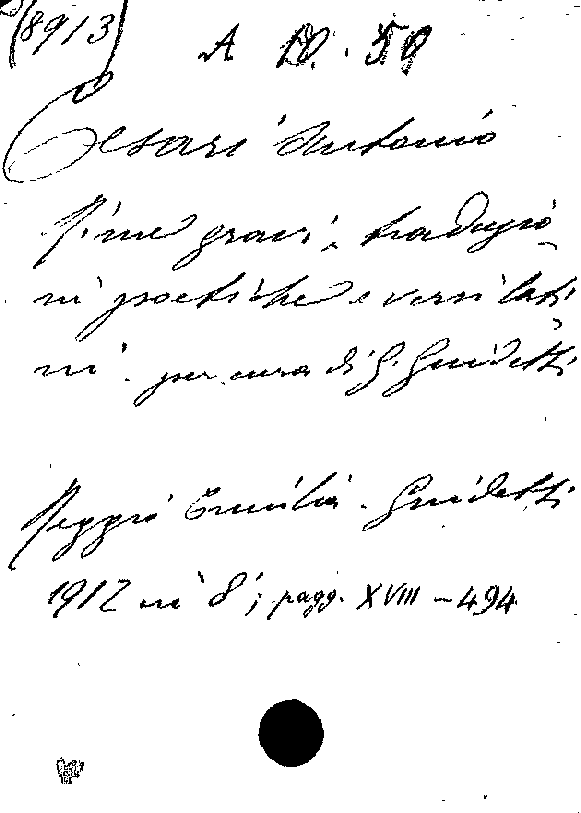 (8913)
A D. 59
Cesari Antonio
Rime gravi, traduzio
ni poetiche e versi lati
ni. per cura di G. Guidetti
Reggio Emilia. Guidetti
1912 in 8°; pagg. XVIII - 494